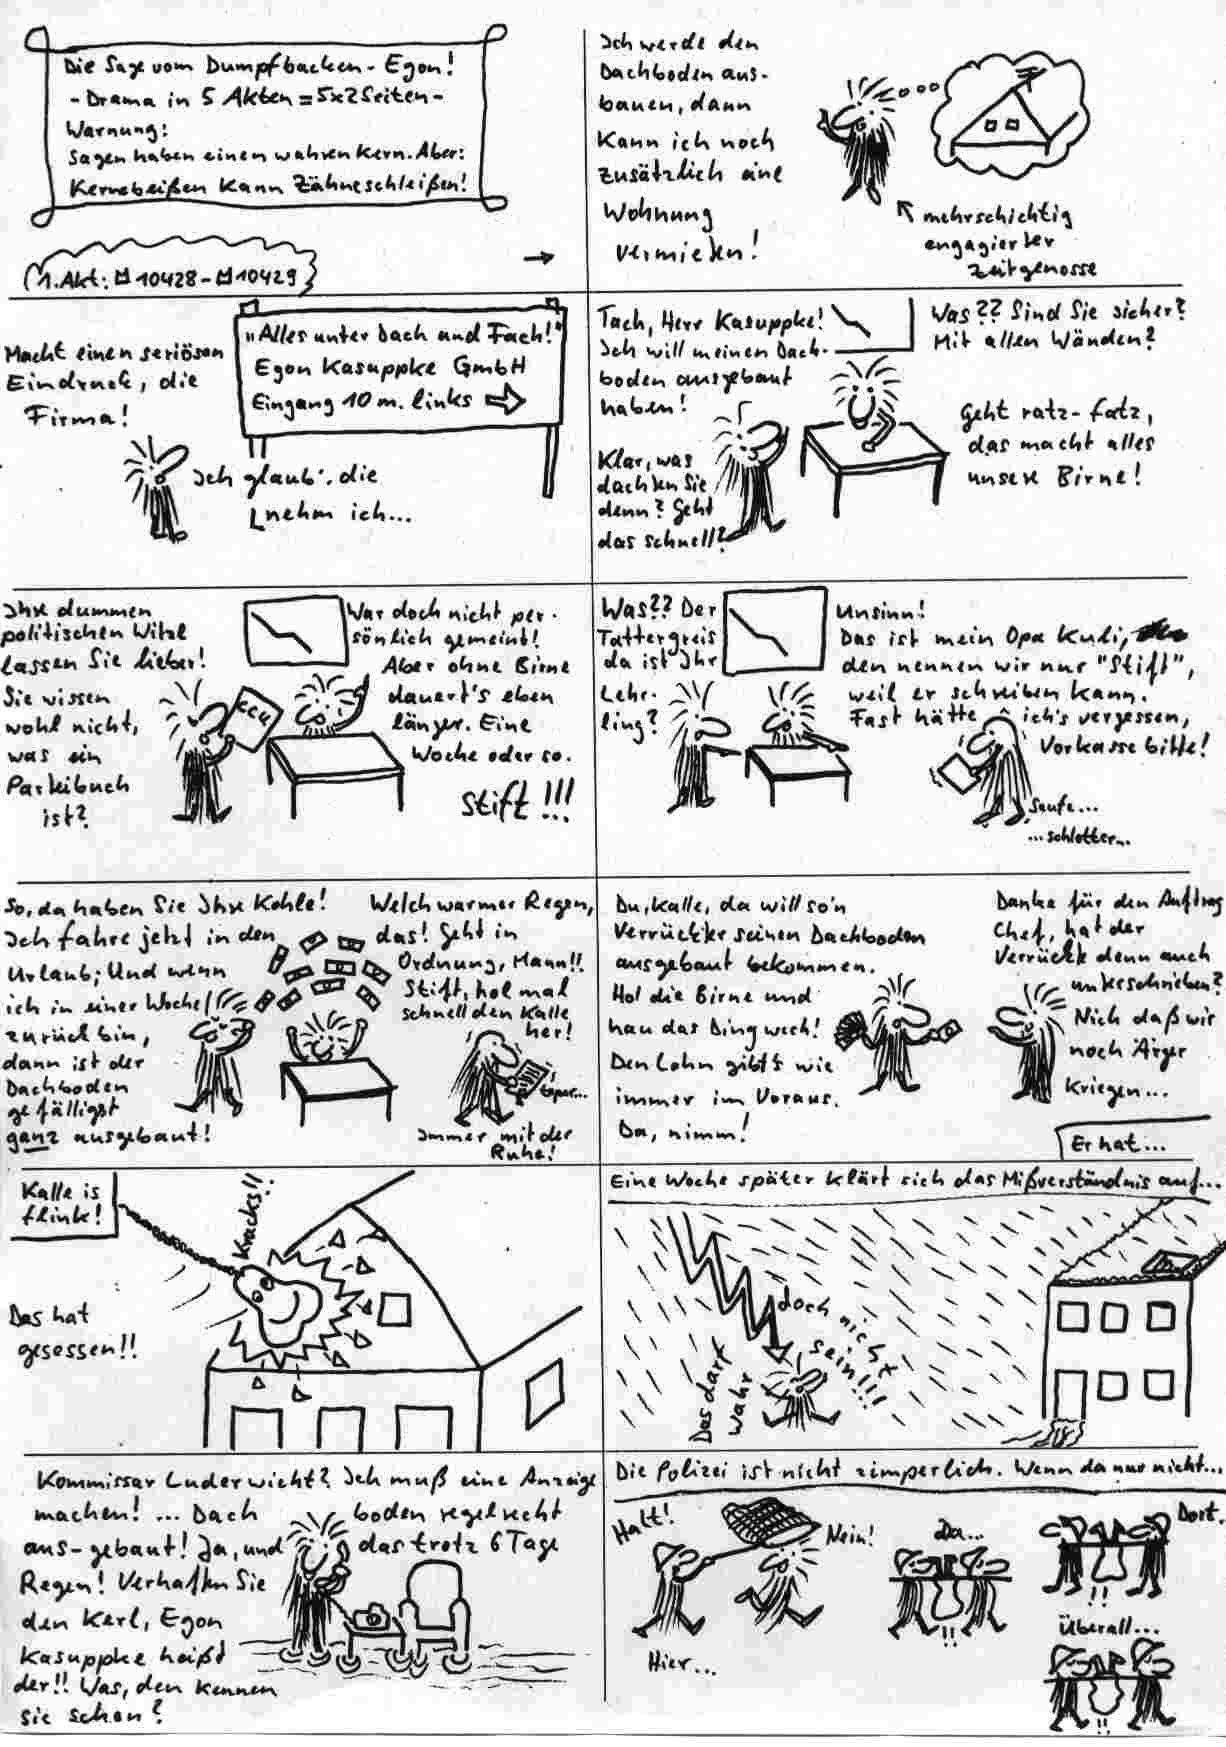 Die Sage vom Dumpfbacken-Egon!
-Drama in 5 Akten = 5x2 Seiten-
Warnung:
Sagen haben einen wahren Kern. Aber:
Kernebeißen kann Zähneschleißen!
1. Akt: 10428 - 10429
Ich werde den
Dachboden aus-
bauen, dann
kann ich noch
zusätzlich eine
Wohnung
vermieten!
mehrschichtig
engagierter
Zeitgenosse
Macht einen seriösen
Eindruck, die
Firma!
"Alles unter Dach und Fach!"
Egon Kasuppke GmbH
Eingang 10 m. links
Ich glaub', die
nehm ich...
Tach, Herr Kasuppke!
Ich will meinen Dach-
boden ausgebaut
haben!
Was?? Sind Sie sicher?
Mit allen Wänden?
Klar, was
dachten Sie
denn? Geht
das schnell?
Geht ratz-fatz,
das macht alles
unsere Birne!
Ihre dummen
politischen Witze
lassen Sie lieber!
Sie wissen
wohl nicht,
was ein
Parteibuch
ist?
War doch nicht per-
sönlich gemeint!
Aber ohne Birne
dauert's eben
länger. Eine
Woche oder so.
Stift!!!
Was?? Der
Tattergreis
da ist Ihr
Lehr-
ling?
Unsinn!
Das ist mein Opa Kuli,
den nennen wir nur "Stift",
weil er schreiben kann.
Fast hätte ich's vergessen,
Vorkasse bitte!
Seufz...
...schlotter...
So, da haben Sie Ihre Kohle!
Ich fahre jetzt in den
Urlaub; Und wenn
ich in einer Woche
zurück bin,
dann ist der
Dachboden
gefälligst
ganz ausgebaut!
Welch warmer Regen,
das! Geht in
Ordnung, Mann!!
Stift, hol mal
schnell den Kalle
her!
Immer mit der
Ruhe!
Du, Kalle, da will so'n
Verrückter seinen Dachboden
ausgebaut bekommen.
Hol die Birne und
hau das Ding wech!
Den Lohn gibt's wie
immer im Voraus.
Da, nimm!
Danke für den Auftrag
Chef, hat der
Verrückte denn auch
unterschrieben?
Nich daß wir
noch Ärger
kriegen...
Er hat...
Kalle is
flink!
Kracks!!
Das hat
gesessen!!
Eine Woche später klärt sich das Mißverständnis auf...
Das darf
doch nicht
wahr
sein!!!
Kommissar Luderwicht? Ich muß eine Anzeige
machen! ... Dach boden regelrecht
aus-gebaut! Ja, und das trotz 6 Tage
Regen! Verhaften Sie
den Kerl, Egon
Kasuppke heißt
der!! Was, den kennen
sie schon?
Die Polizei ist nicht zimperlich. Wenn da nur nicht...
Halt!
Nein!
Hier...
Da...
!!
Dort.
!!
Überall...
!!